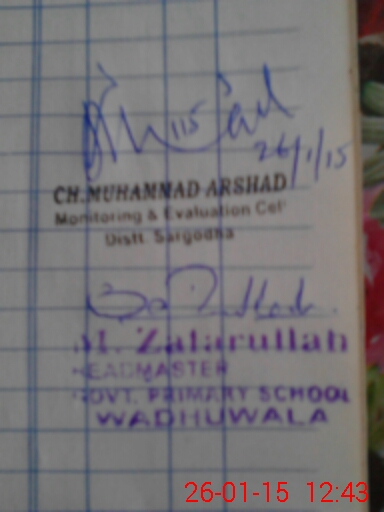 115
26/1/15
CH.MUHAMMAD ARSHAD
Monitoring & Evaluation Cel
Distt. Sargodha
M. Zafarullah
HEADMASTER
GOVT. PRIMARY SCHOOL
WADHUWALA
26-01-15 12:43